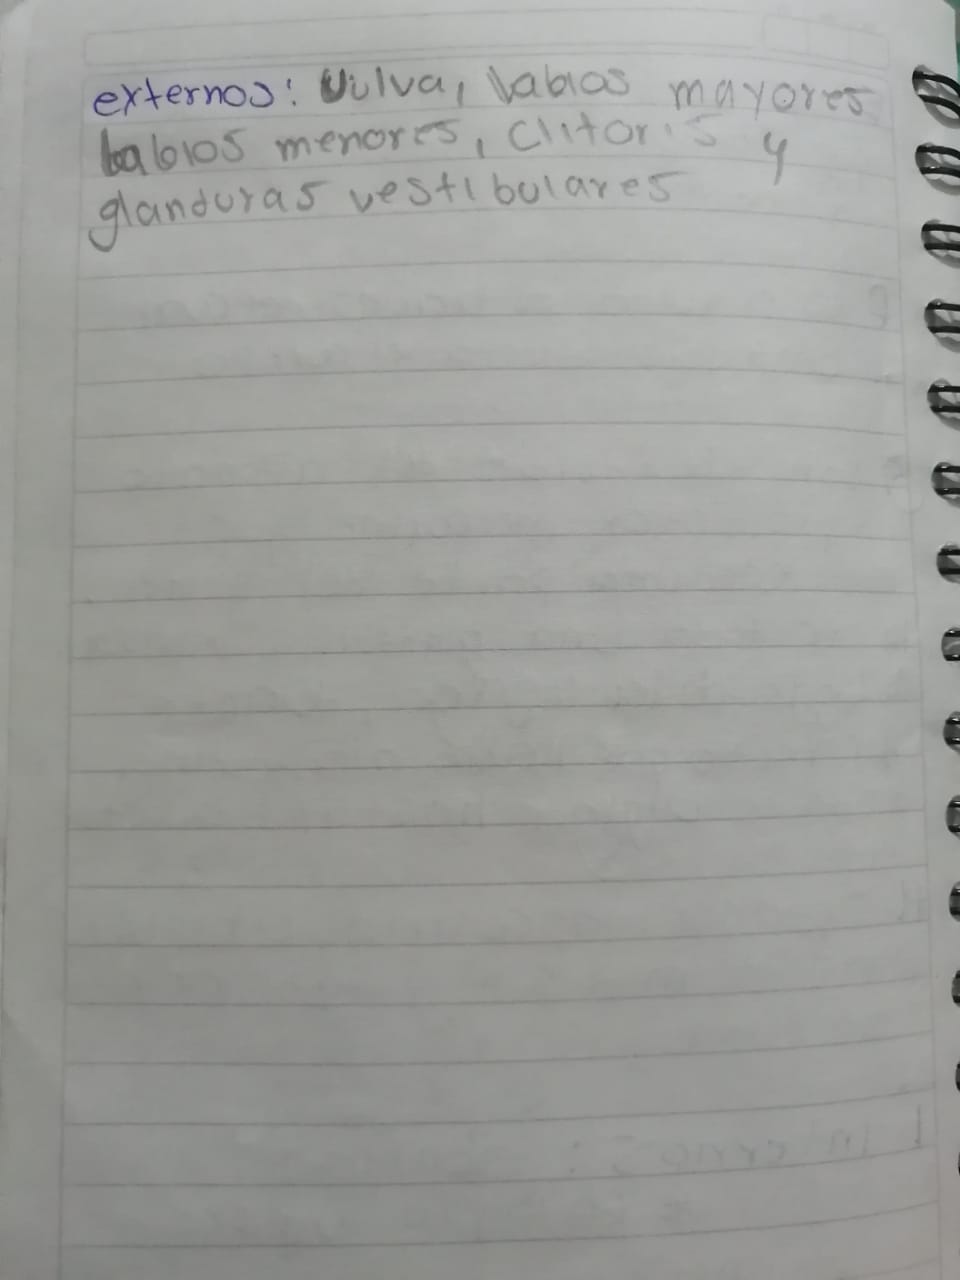 externos: Vulva, labios mayores
labios menores, clitoris y
glanduras vestibulares
Internos: